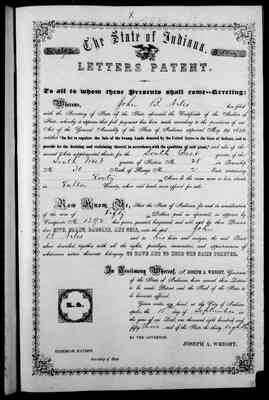 The State of Indiana.
LETTERS PATENT.
To all to whom these Presents shall come—Greeting:
Whereas, John B. has filed
with the Secretary of State of the State aforesaid the Certificate of the Auditor of
State, whereby it appears that full payment has been made according to the provisions of an
Act of the General Assembly of the State of Indiana, approved May 1852
entitled "An Act to regulate the Sale of the Swamp Lands donated by the United States to the State of Indiana, and to
provide for the draining and reclaiming thereof in accordance with the condition of said grant," and also of the
thereto for the South West quarter of the
South West quarter of Section No. in Township
No. North of Range No. East containing
Forty Acres
in Fulton County, where said lands were offered for sale.
Now Know Ye, That the State of Indiana for and in consideration
of the sum of Fifty Dollars paid as aforesaid, as appears by
Certificate No. has given, granted, bargained and sold
unto the said John
B.
and to heirs and assigns, the said Tract
above described together with all the rights, privileges, immunities, and appurtenances of
whatsoever nature thereunto belonging TO HAVE AND TO HOLD THE SAME FOREVER.
In Testimony Whereof, I JOSEPH A. WRIGHT, Governor
of the State of Indiana have caused these Letters
to be made Patent and the Seal of the State to
be hereunto affixed.
Given under my hand, at the City of Indianapolis
the 15 day of September in
the year of our Lord one thousand eight hundred and
fifty three and of the State the thirty eighth
BY THE GOVERNOR
JOSEPH A. WRIGHT.
Secretary of State